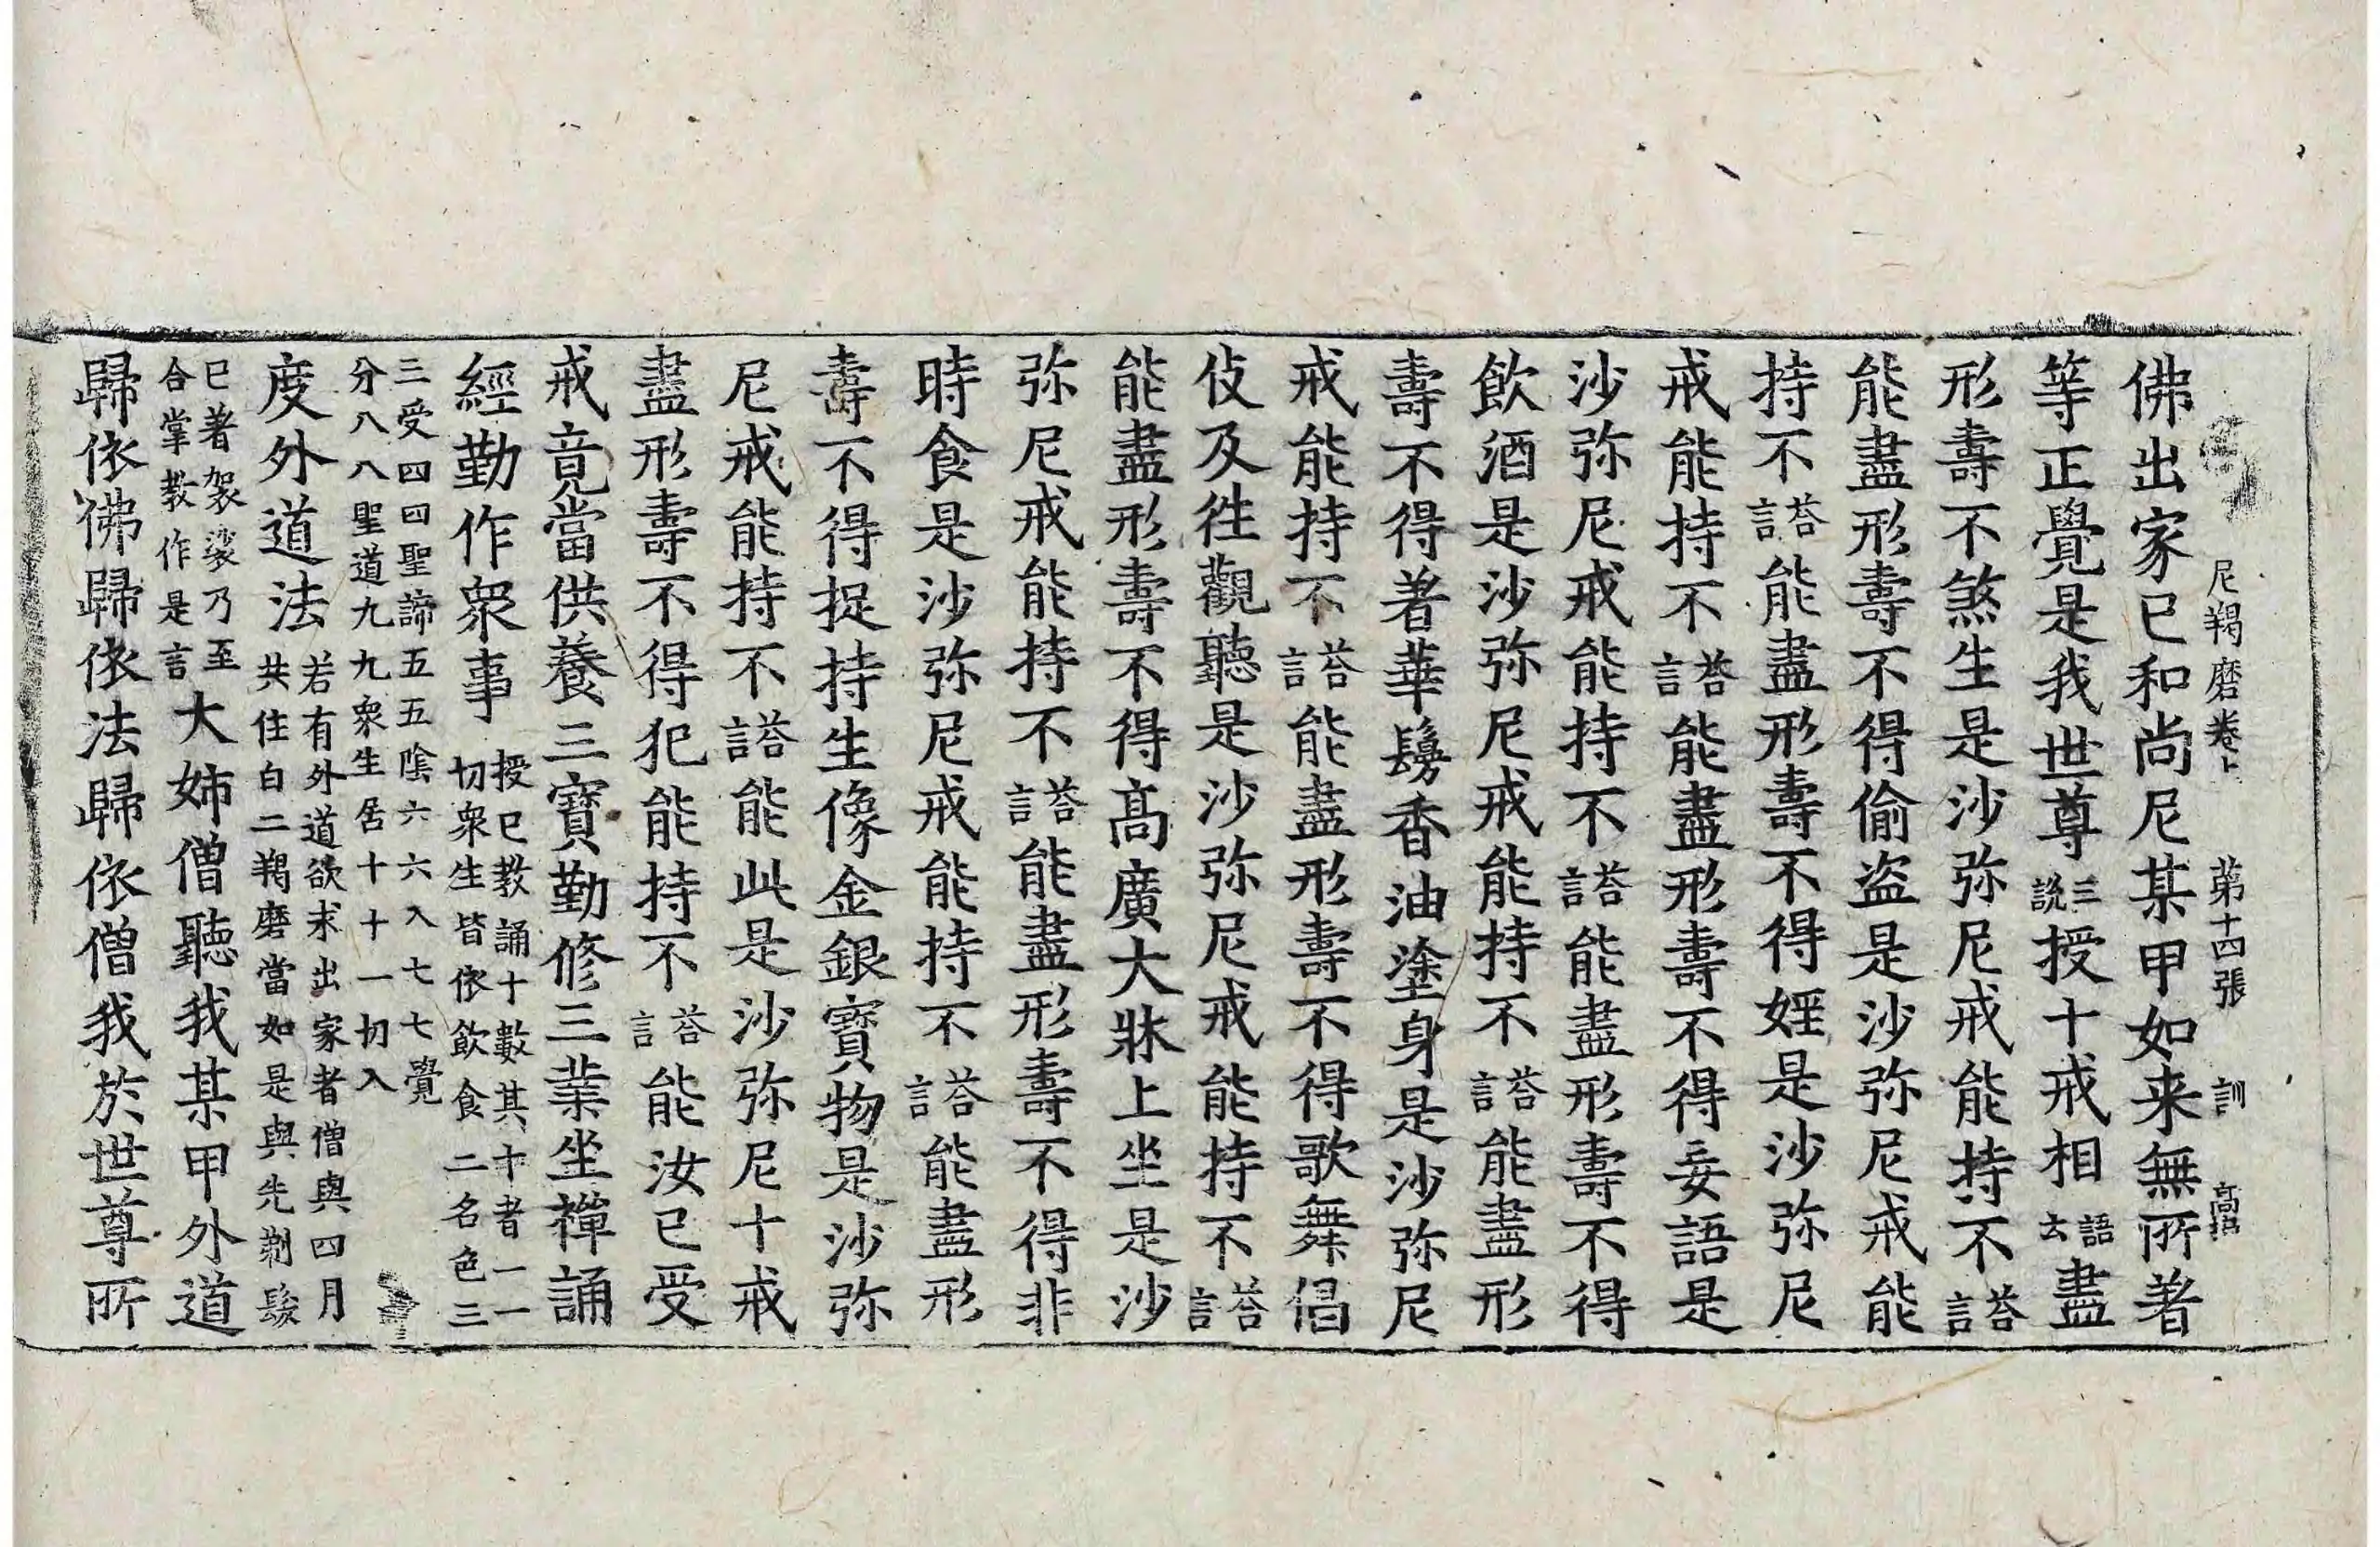 尼羯磨卷上 第十四張 訓
佛出家已和尚尼某甲如来無所著
等正覺是我世尊三說授十戒相語云盡
形壽不煞生是沙弥尼戒能持不荅言
能盡形壽不得偷盗是沙弥尼戒能
持不荅言能盡形壽不得婬是沙弥尼
戒能持不荅言能盡形壽不得妄語是
沙弥尼戒能持不荅言能盡形壽不得
飲酒是沙弥尼戒能持不荅言能盡形
壽不得著華鬘香油塗身是沙弥尼
戒能持不荅言能盡形壽不得歌舞倡
伎及徃觀聽是沙弥尼戒能持不荅言
能盡形壽不得髙廣大牀上坐是沙
弥尼戒能持不荅言能盡形壽不得非
時食是沙弥尼戒能持不荅言能盡形
壽不得捉持生像金銀寶物是沙弥
尼戒能持不荅言能此是沙弥尼十戒
盡形壽不得犯能持不荅言能汝已受
戒竟當供養三寶勤修三業坐禪誦
經勤作衆事授已教誦十數其十者一一切衆生皆依飲食二名色三
三受四四聖諦五五陰六六入七七覺
分八八聖道九九衆生居十十一切入
度外道法若有外道欲求出家者僧與四月共住白二羯磨當如是與先剃髮
已著袈裟乃至合掌教作是言大姊僧聽我某甲外道
歸依佛歸依法歸依僧我於世尊所